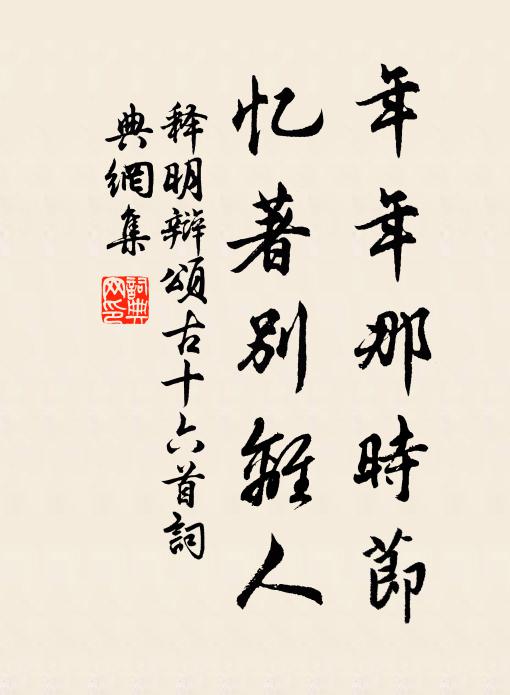 年年那時節
忆著别離人
释明辩頌古十六首詞
典網集
詞典
网印